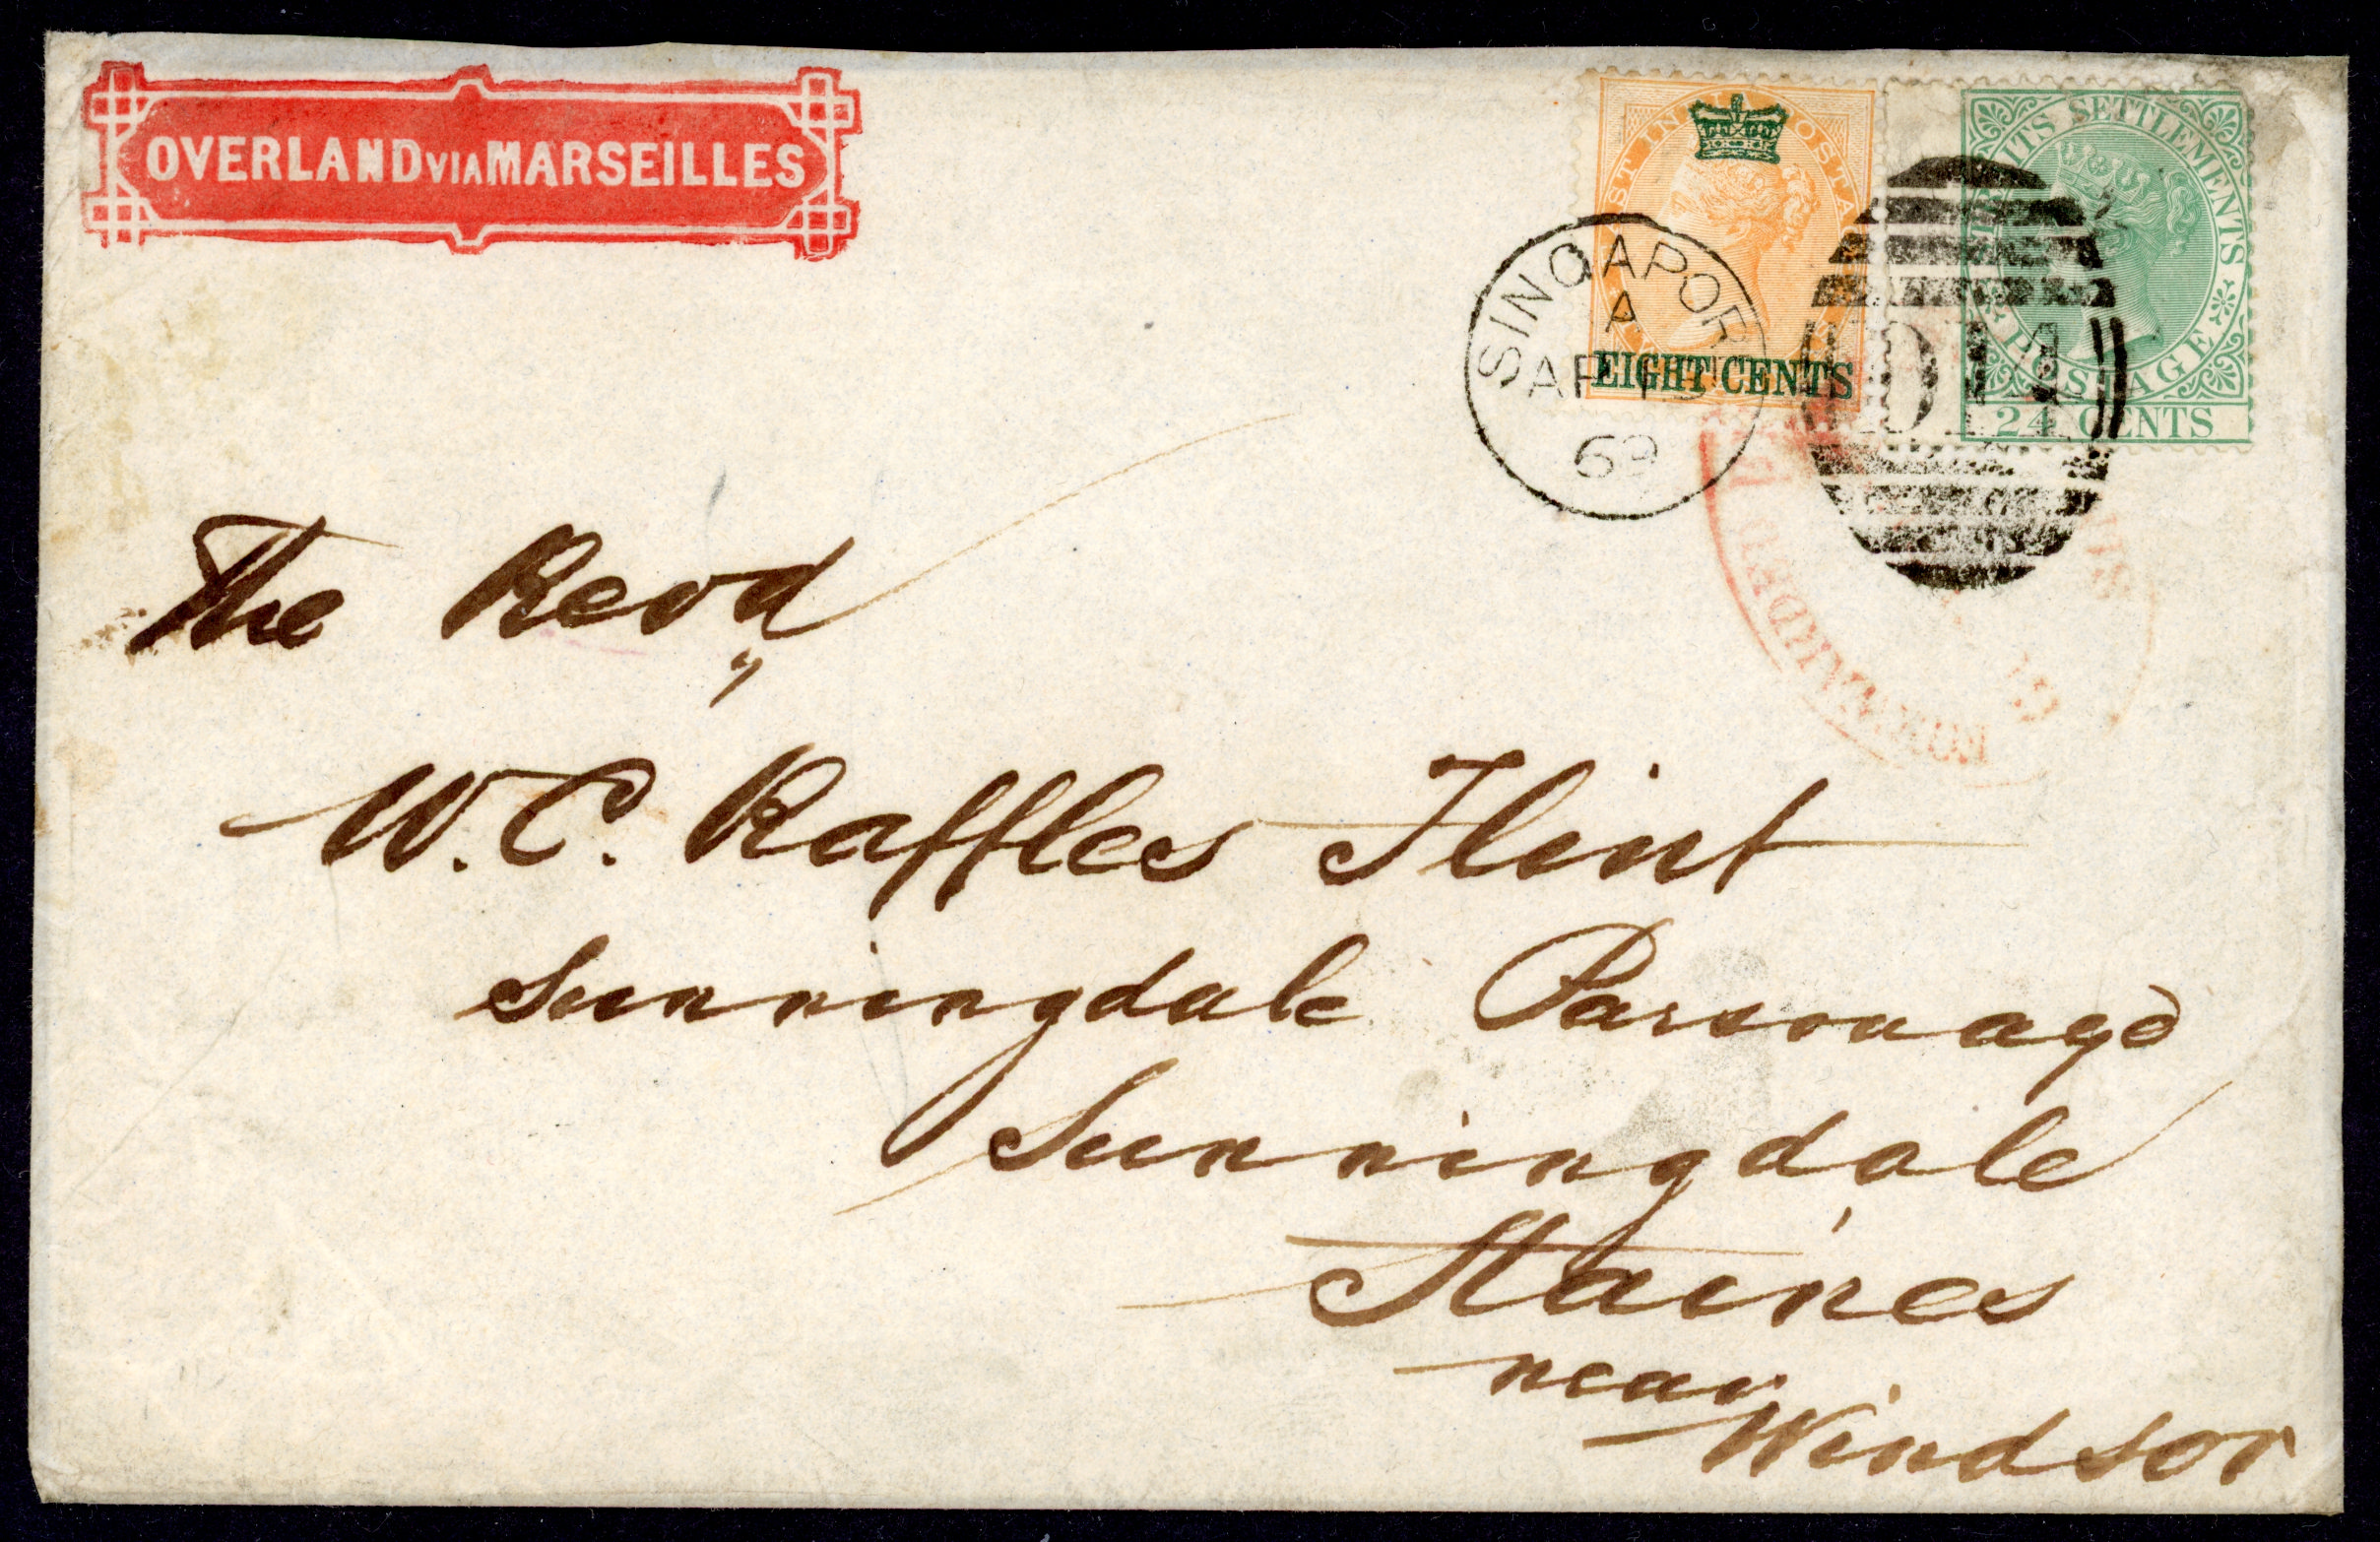 OVERLAND VIA MARSEILLES
EIGHT CENTS
STRAITS SETTLEMENTS
POSTAGE
24 CENTS
SINGAPORE
A
AP 15
69
D14
The Revd
W. C. Raffles Flint
Sunningdale Parsonage
Sunningdale
Staines
near
Windsor